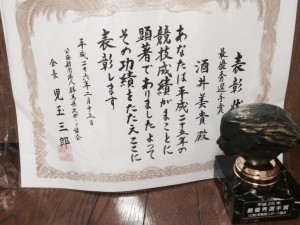 表彰状
最優秀選手賞
酒井美貴殿
あなたは平成二十五年の
競技成績がまことに
顕著でありましたよって
その功績をたたえここに
表彰します
平成二十六年二月十五日
公益財団法人群馬県スポーツ協会
会長 児玉三郎
平成25年
最優秀選手賞